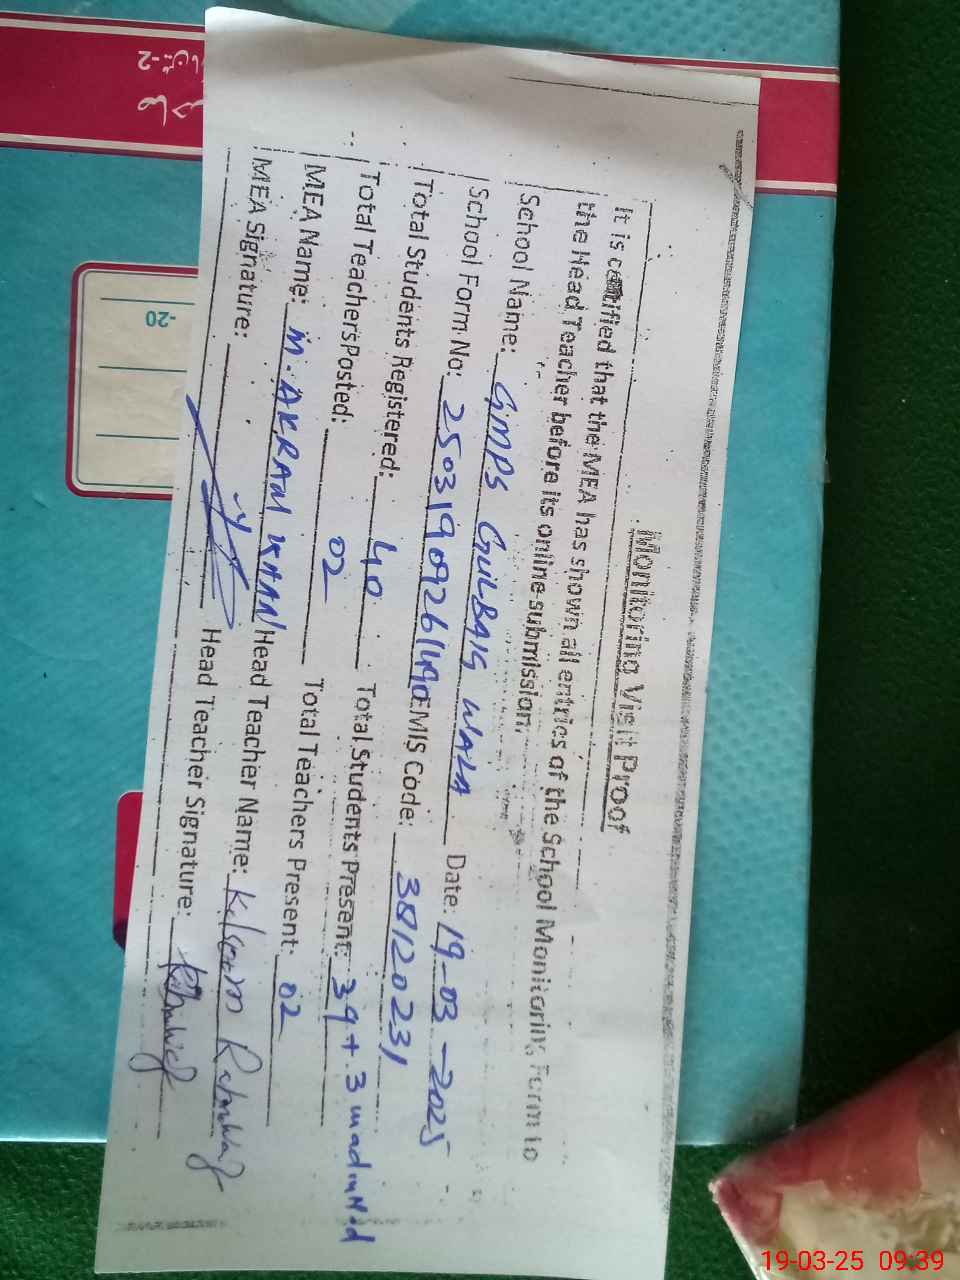 Monitoring Visit Proof
It is certified that the MEA has shown all entries of the School Monitoring Form to
the Head Teacher before its online submission.
School Name: GMPS GULBAIG WALA Date: 19-03-2025
School Form No: 25031909261490 EMIS Code: 38120231
Total Students Registered: 40 Total Students Present: 39 + 3
Total Teachers Posted: 02 Total Teachers Present: 02
MEA Name: M. AKRAM KHAN Head Teacher Name: Kalsoom
MEA Signature: Head Teacher Signature:
-2
-20
19-03-25 09:39